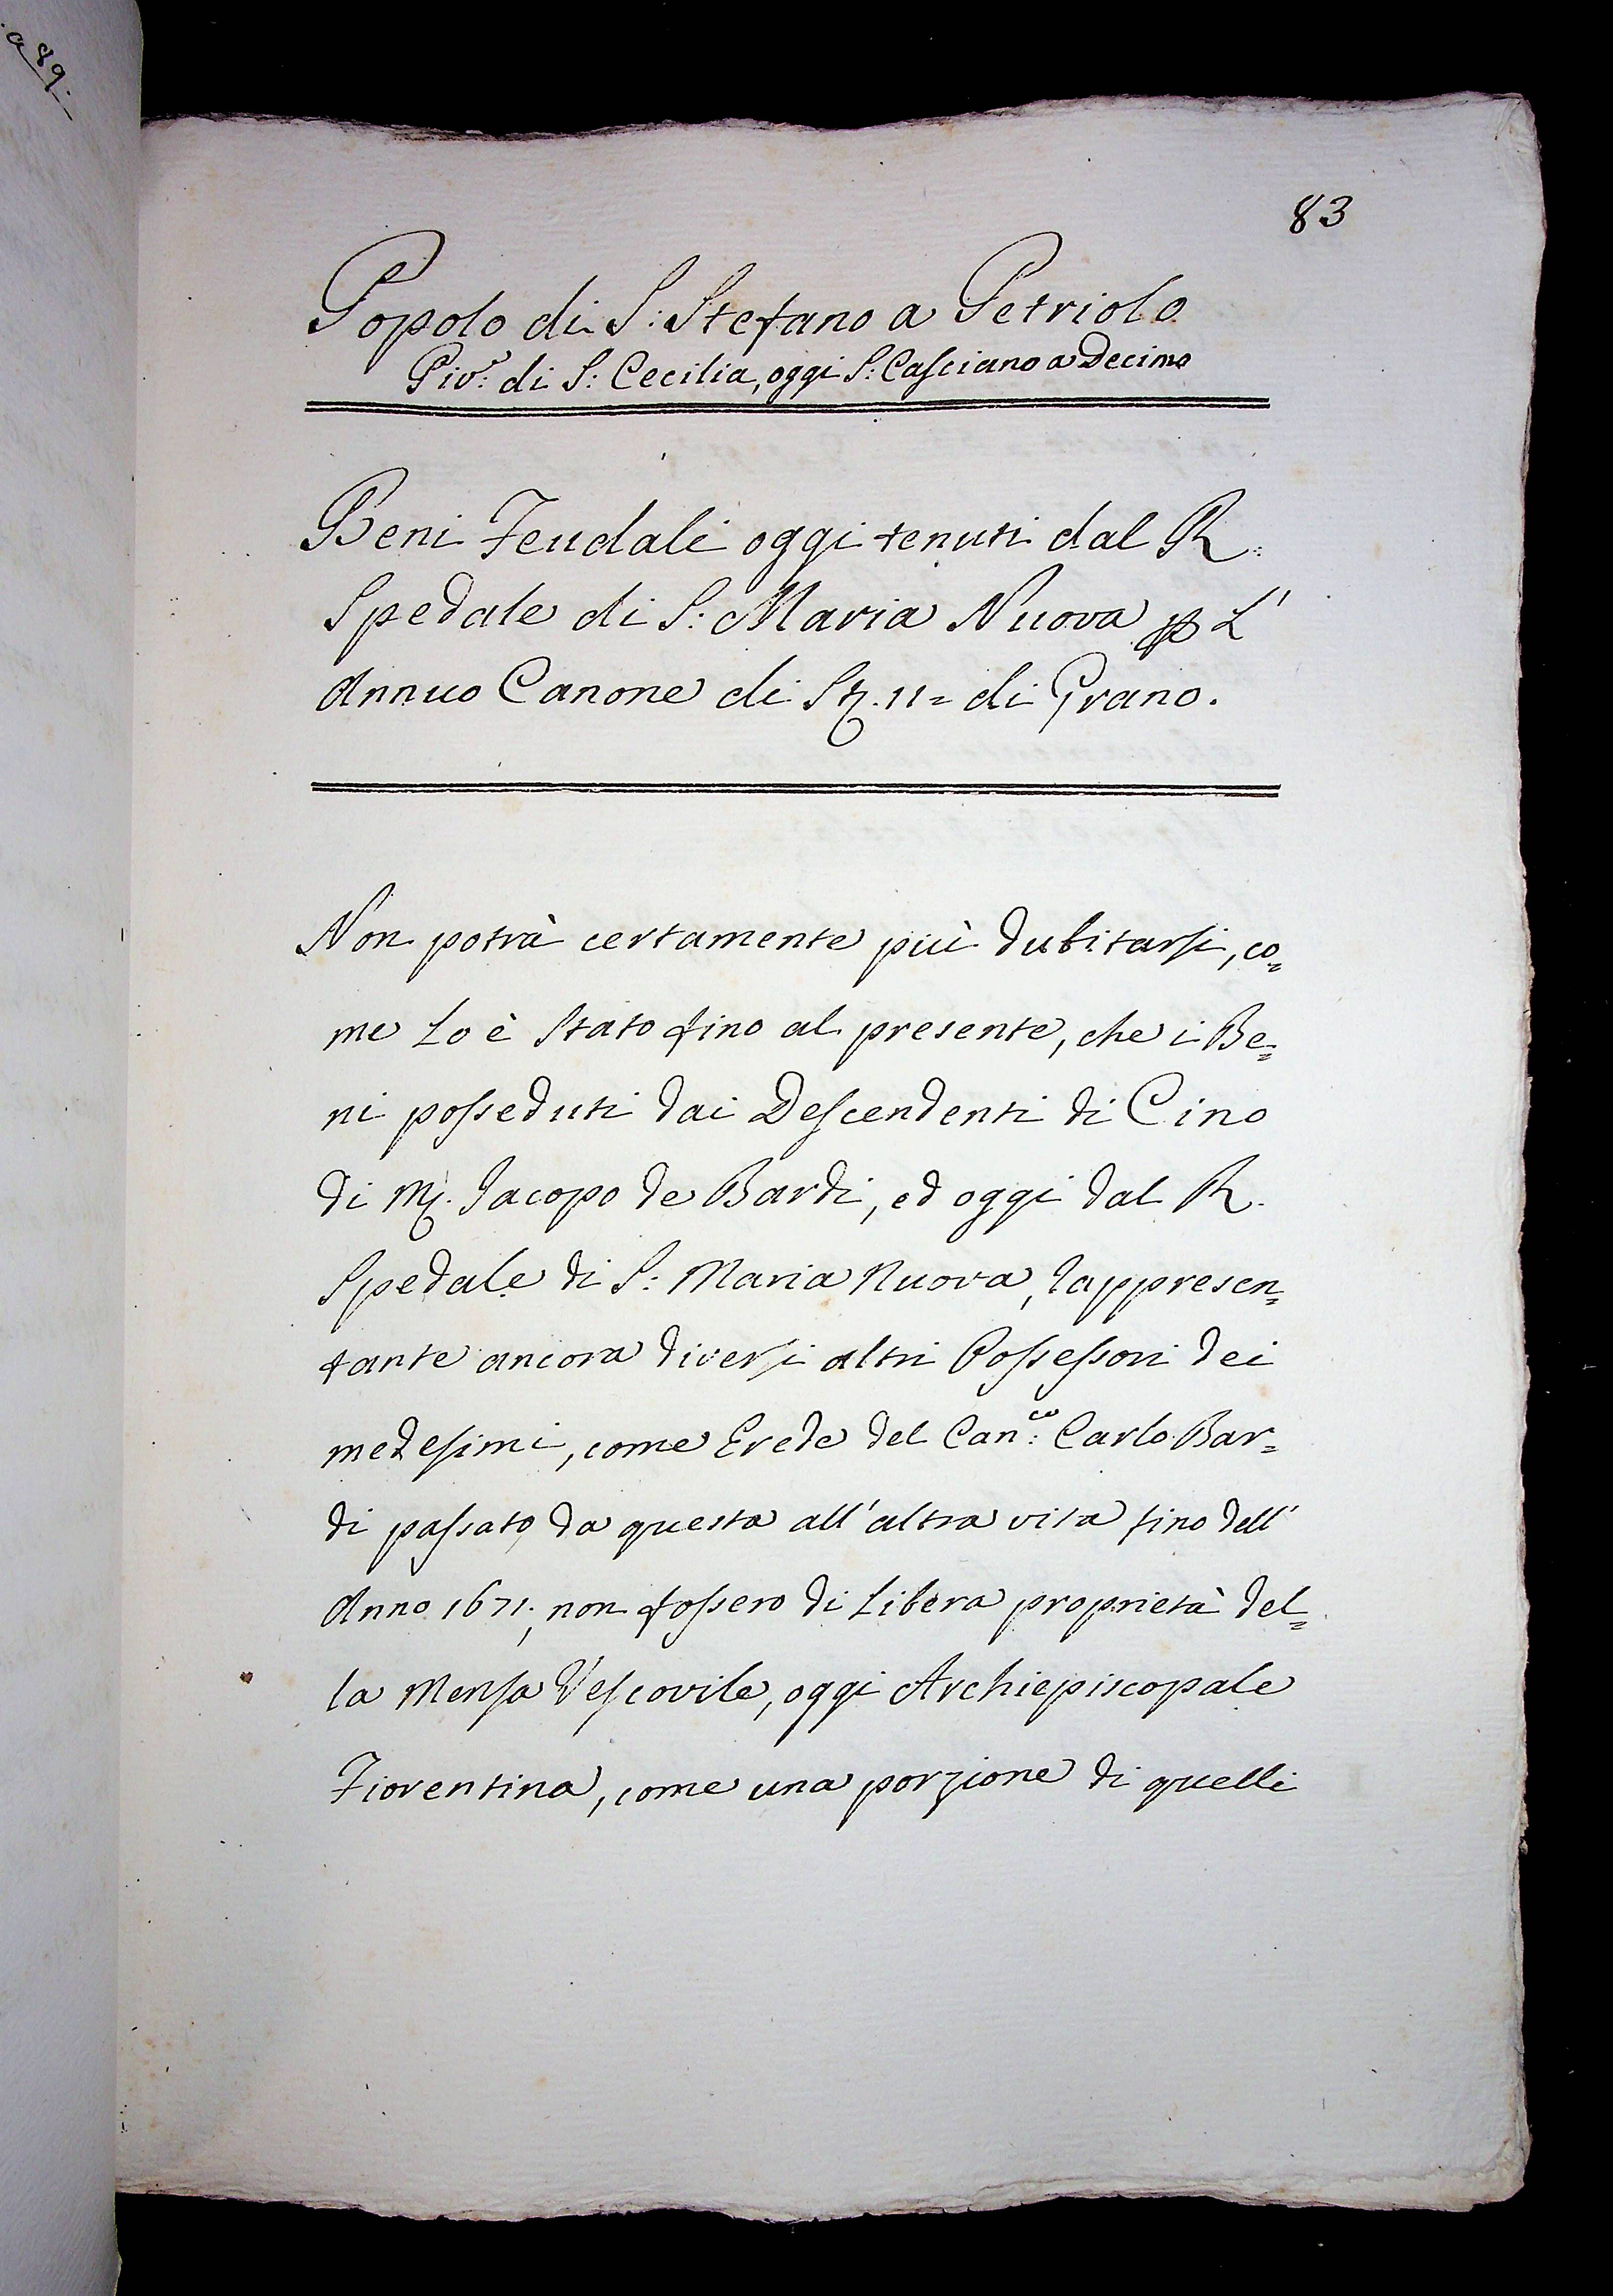 a 89.
83
Popolo di S: Stefano a Petriolo
Piv.e di S: Cecilia, oggi S: Casciano a Decimo
Beni Feudali oggi tenuti dal R:
Spedale di S: Maria Nuova p L'
Annuo Canone di St. 11= di Grano.
Non potrà certamente più dubitarsi, co=
me Lo è Stato fino al presente, che i Be=
ni posseduti dai Descendenti di Cino
di M. Jacopo de Bardi, ed oggi dal R.
Spedale di S: Maria Nuova, rappresen=
tante ancora diversi altri Possessori dei
medesimi, come Erede del Can:co Carlo Bar=
di passato da questa all'altra vita fino dell'
Anno 1671, non fossero di Libera proprietà del=
la Mensa Vescovile, oggi Archiepiscopale
Fiorentina, come una porzione di quelli